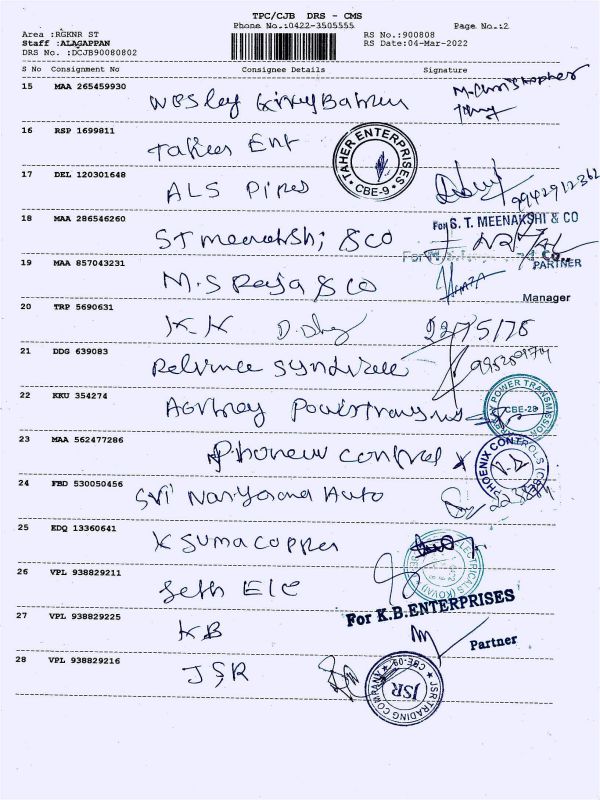 TPC/CJB DRS - CMS
Phone No.:0422-3505555 Page No.:2
Area :RGKNR ST RS No.:900808
Staff :ALAGAPPAN RS Date:04-Mar-2022
DRS No. :DCJB90080802
S No Consignment No Consignee Details Signature
15 MAA 265459930 Wesley
M. Christopher
16 RSP 1699811 Taher Ent
TAHER ENTERPRISES
CBE-9
17 DEL 120301648 ALS Pipes
9942912362
18 MAA 286546260 ST meenakshi & CO
For S. T. MEENAKSHI & CO
PARTNER
19 MAA 857043231 M.S Raja & CO
Manager
20 TRP 5690631 K.K
21 DDG 639083 Reliance Syndicate
22 KKU 354274
POWER TRANSMISSION
CBE-28
23 MAA 562477286 Phoenix control
PHOENIX CONTROLS
24 FBD 530050456 Sri Narayana Auto
25 EDQ 13360641 K Suma Copper
26 VPL 938829211 Seth Ele
ELECTRICALS
For K.B.ENTERPRISES
27 VPL 938829225 KB
Partner
28 VPL 938829216 JSR
JSR TRADING COMPANY
CBE-09
JSR